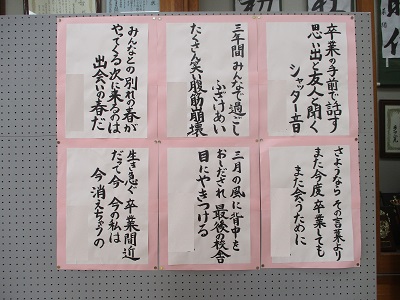 卒業の手前で話す
思い出と友人と聞く
シャッター音
三年間 みんなで過ごし
ふざけあい
たくさん笑い腹筋崩壊
みんなとの別れの春が
やってくる次に来るのは
出会いの春だ
さようなら その言葉より
また今度 卒業しても
また会うために
三月の風に背中を
おしだされ 最後の校舎
目にやきつける
生き急ぐ 卒業間近
だって今 今の私は
今消えちゃうの